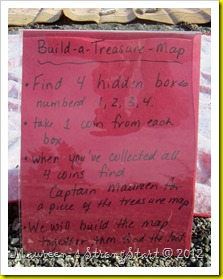 Build-a-Treasure-Map
• Find 4 hidden boxes
numberd 1, 2, 3, 4.
• take 1 coin from each
box.
• when you've collected all
4 coins find
Captain Maureen for
a piece of the treasure map
• We will build the map
together then find the
Maureen @ Strong Start © 2012